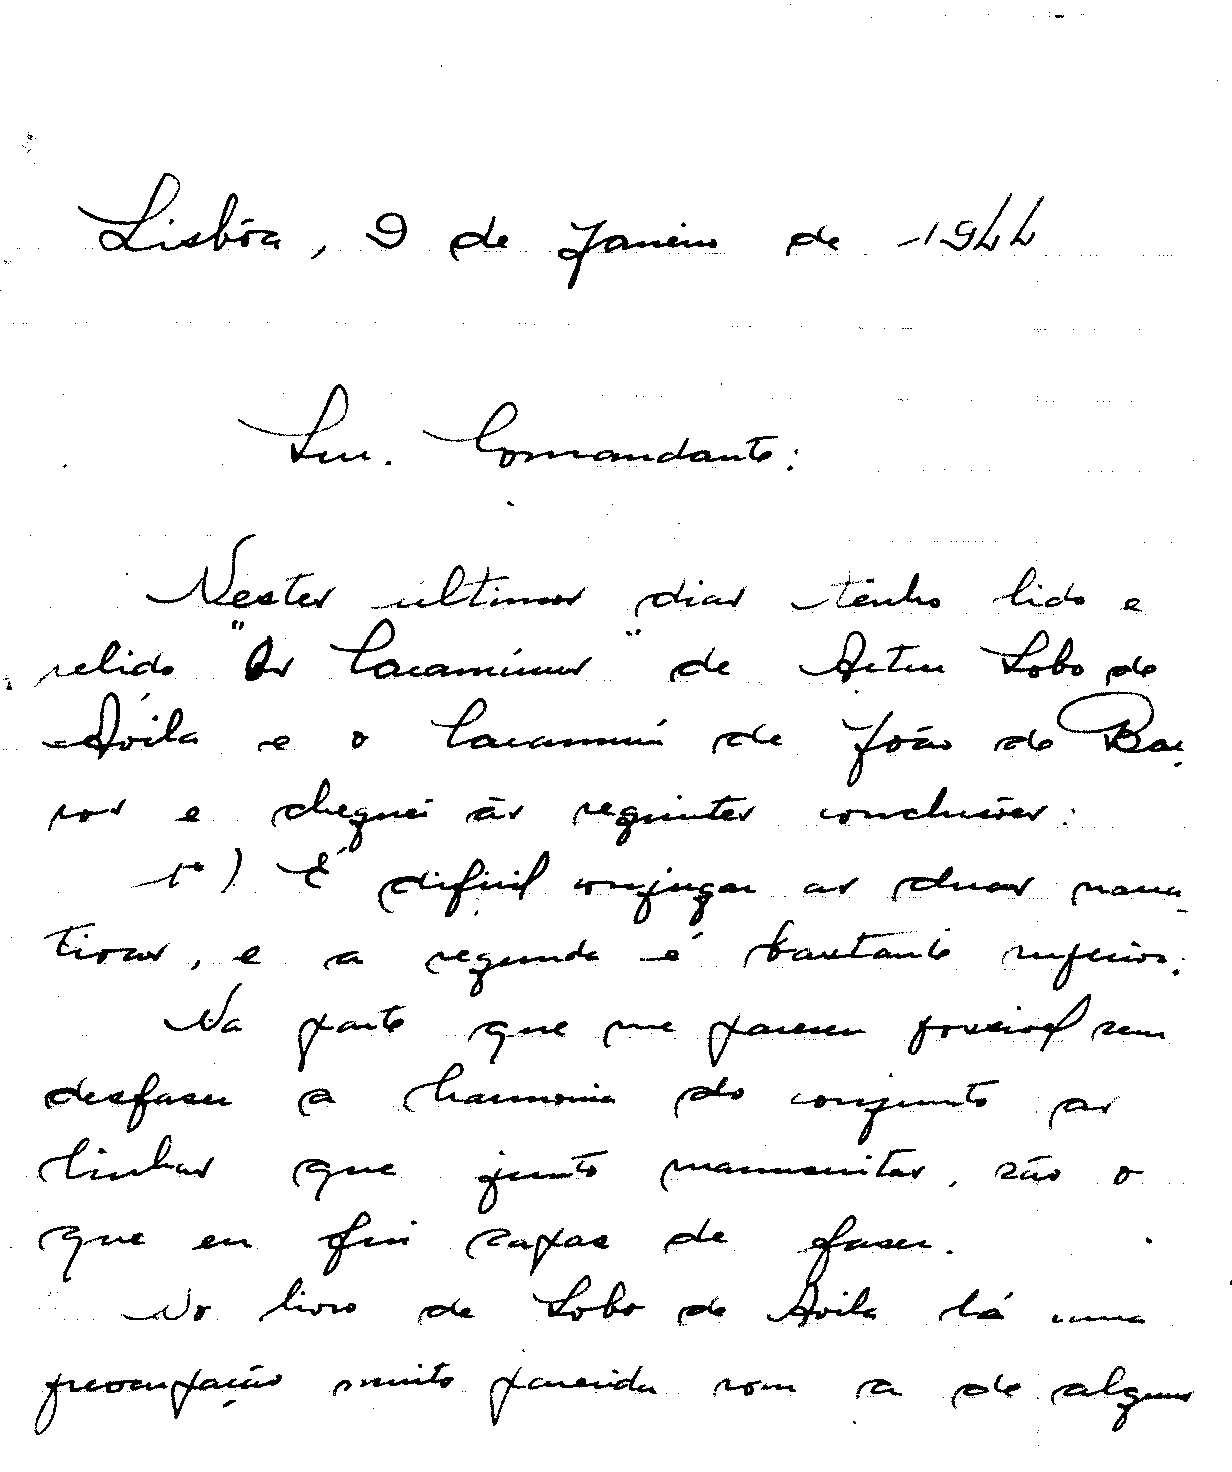 Lisbôa, 9 de Janeiro de 1944
Snr. Comandante:
Nestes ultimos dias tenho lido e
relido "Os Caramúrus" de Artur Lobo de
Ávila e o Caramurú de João de Bar-
ros e cheguei ás seguintes conclusões:
1º) É dificil conjugar as duas narra-
tivas, e a segunda é bastante inferior.
Na parte que me pareceu possivel sem
desfaser a harmonia do conjunto as
linhas que junto manuscritas, são o
que eu fui capas de faser.
No livro de Lobo de Ávila há uma
preocupação muito parecida com a de alguns